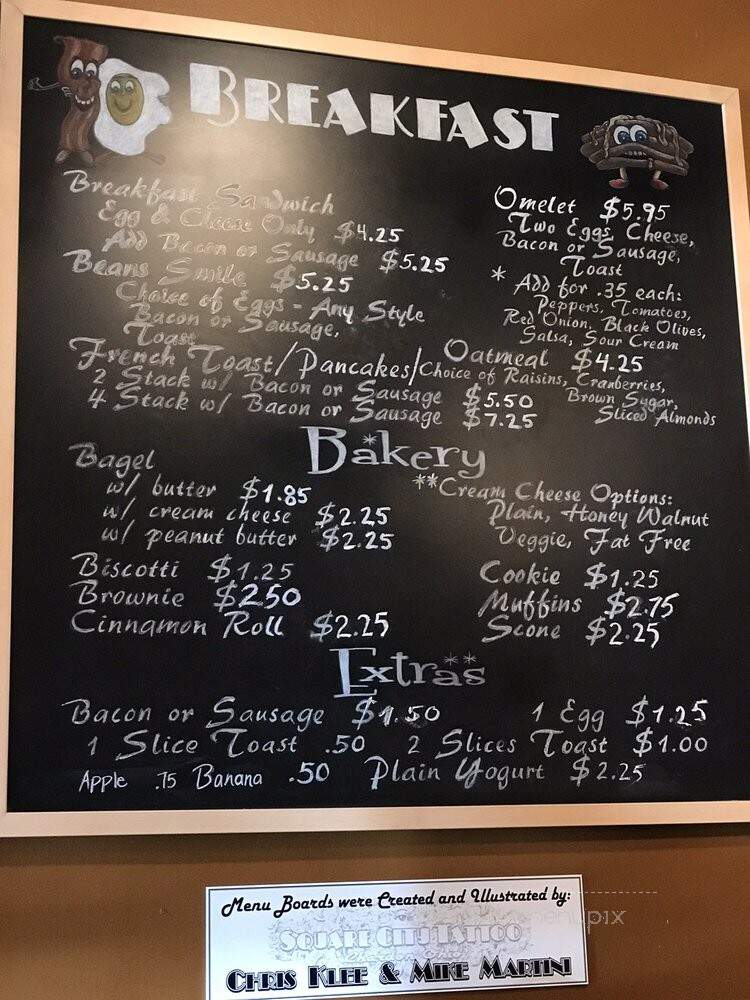 BREAKFAST
Breakfast Sandwich
Egg & Cheese Only $4.25
Add Bacon or Sausage $5.25
Beans Smile $5.25
Choice of Eggs - Any Style
Bacon or Sausage,
Toast
Omelet $5.95
Two Eggs, Cheese,
Bacon or Sausage,
Toast
* Add for .35 each:
Peppers, Tomatoes,
Red Onion, Black Olives,
Salsa, Sour Cream
French Toast/Pancakes/
2 Stack w/ Bacon or Sausage $5.50
4 Stack w/ Bacon or Sausage $7.25
Oatmeal $4.25
Choice of Raisins, Cranberries,
Brown Sugar,
Sliced Almonds
Bakery
Bagel
w/ butter $1.85
w/ cream cheese $2.25
w/ peanut butter $2.25
**Cream Cheese Options:
Plain, Honey Walnut
Veggie, Fat Free
Biscotti $1.25
Brownie $250
Cinnamon Roll $2.25
Cookie $1.25
Muffins $2.75
Scone $2.25
Extras
Bacon or Sausage $1.50 1 Egg $1.25
1 Slice Toast .50 2 Slices Toast $1.00
Apple .75 Banana .50 Plain Yogurt $2.25
Menu Boards were Created and Illustrated by:
SQUARE CITY TATTOO
CHRIS KLEE & MIKE MARTINI
menupix